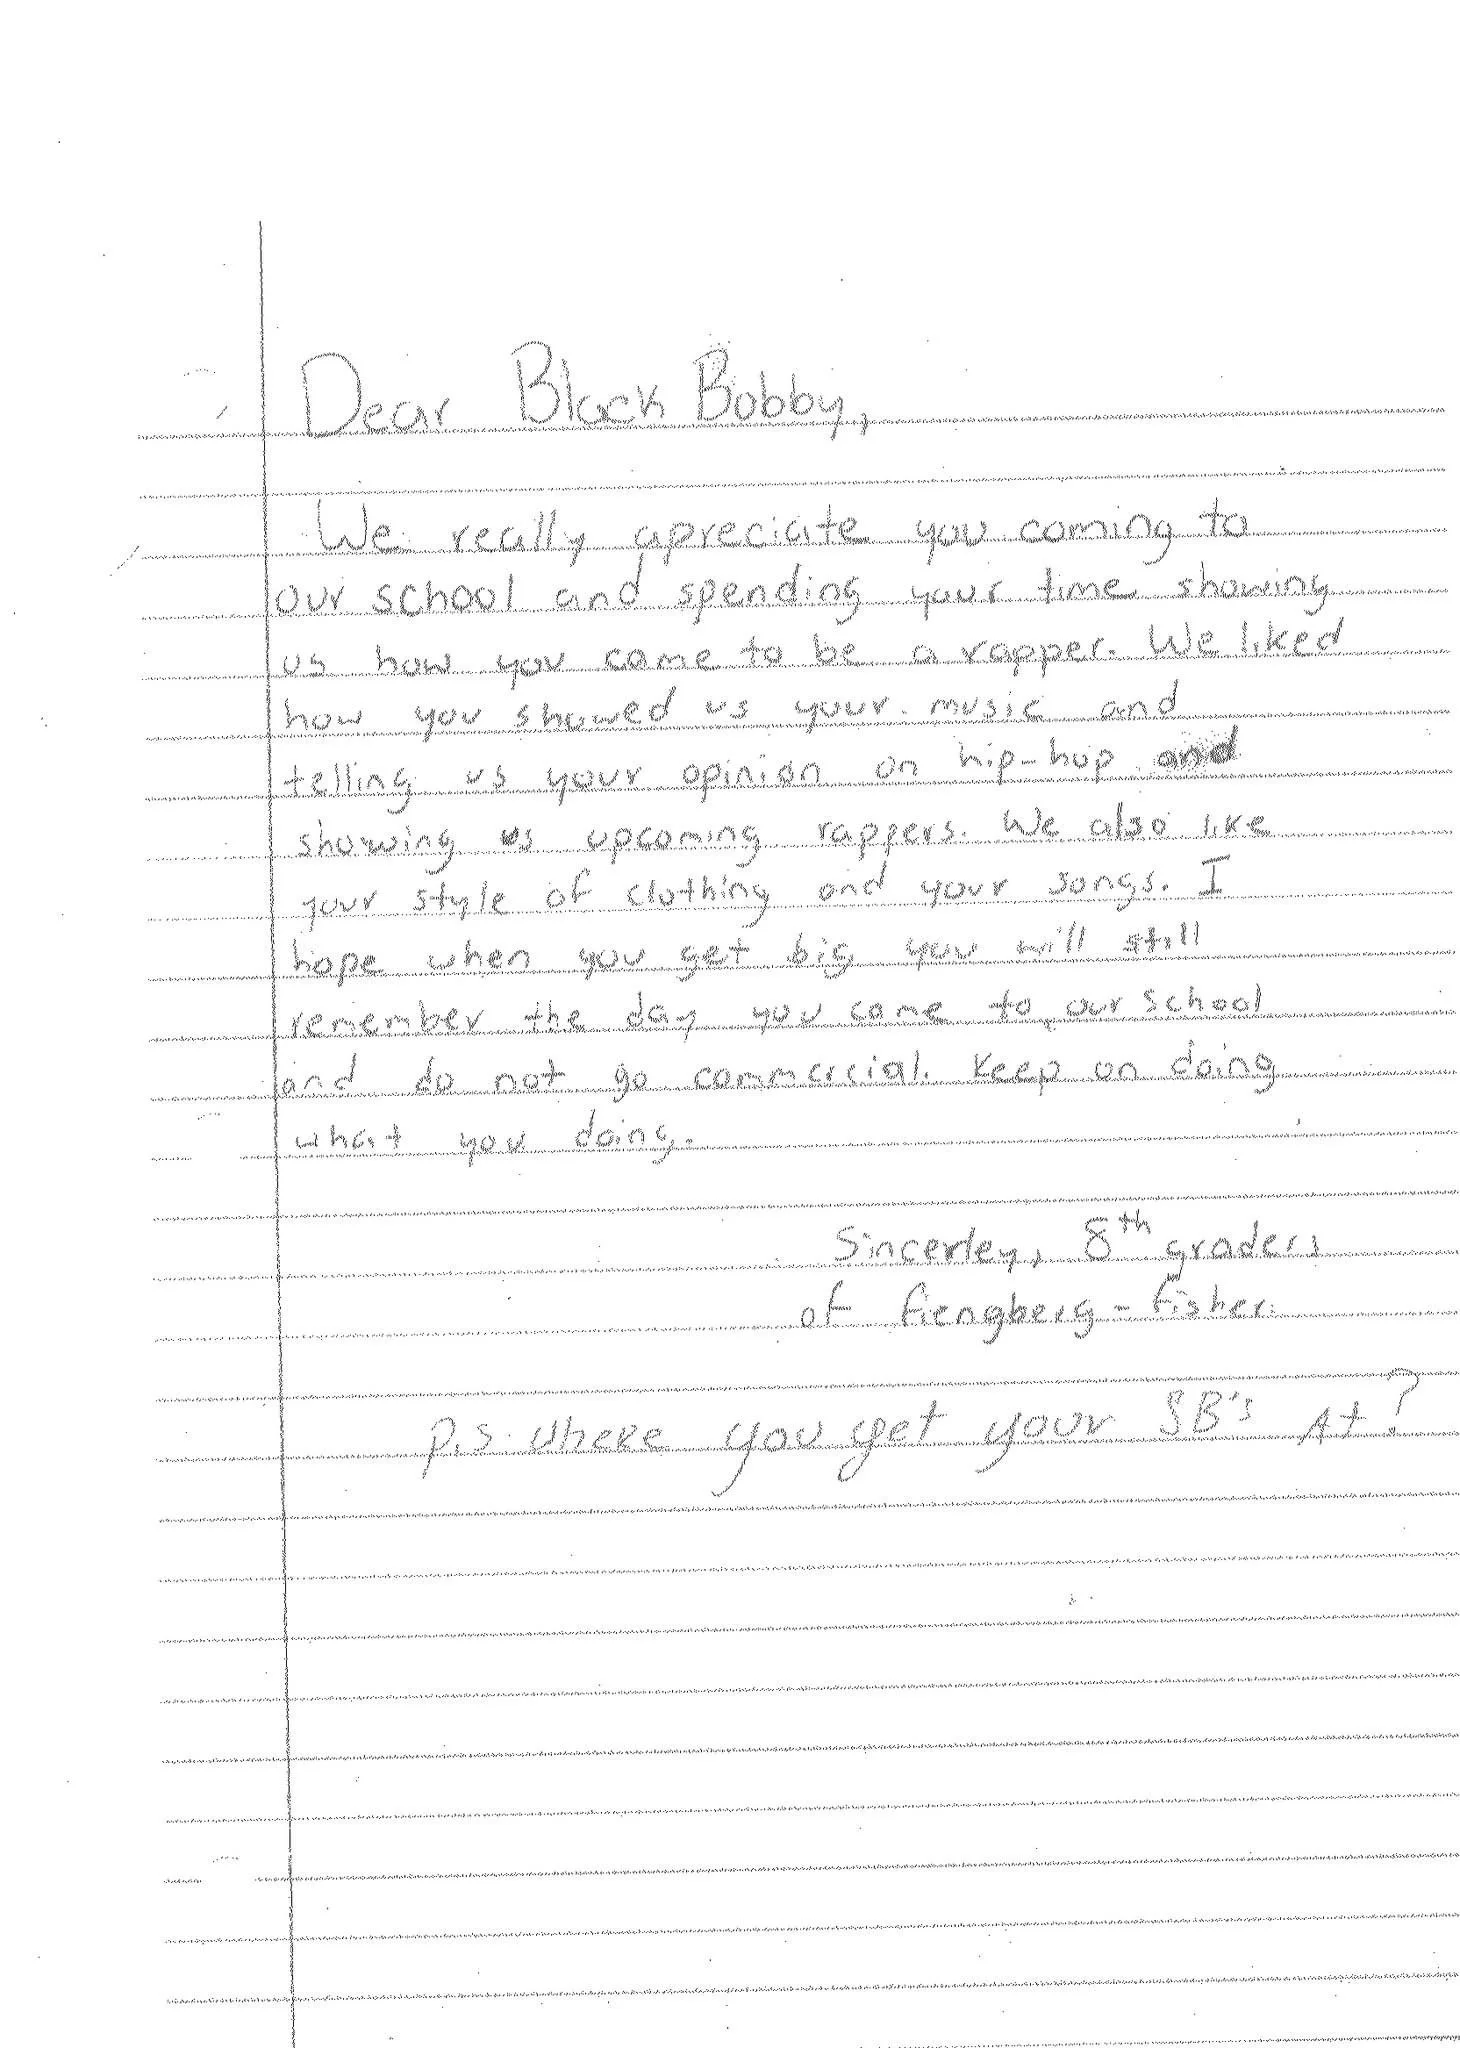 Dear Black Bobby,
We really apreciate you coming to
our school and spending your time showing
us how you came to be a rapper. We liked
how you showed us your music and
telling us your opinion on hip-hop and
showing us upcoming rappers. We also like
your style of clothing and your songs. I
hope when you get big you will still
remember the day you came to our school
and do not go commercial. Keep on doing
what you doing.
Sincerley, 8th graders
of Fiengberg-Fisher.
P.S. Where you get your SB's At?